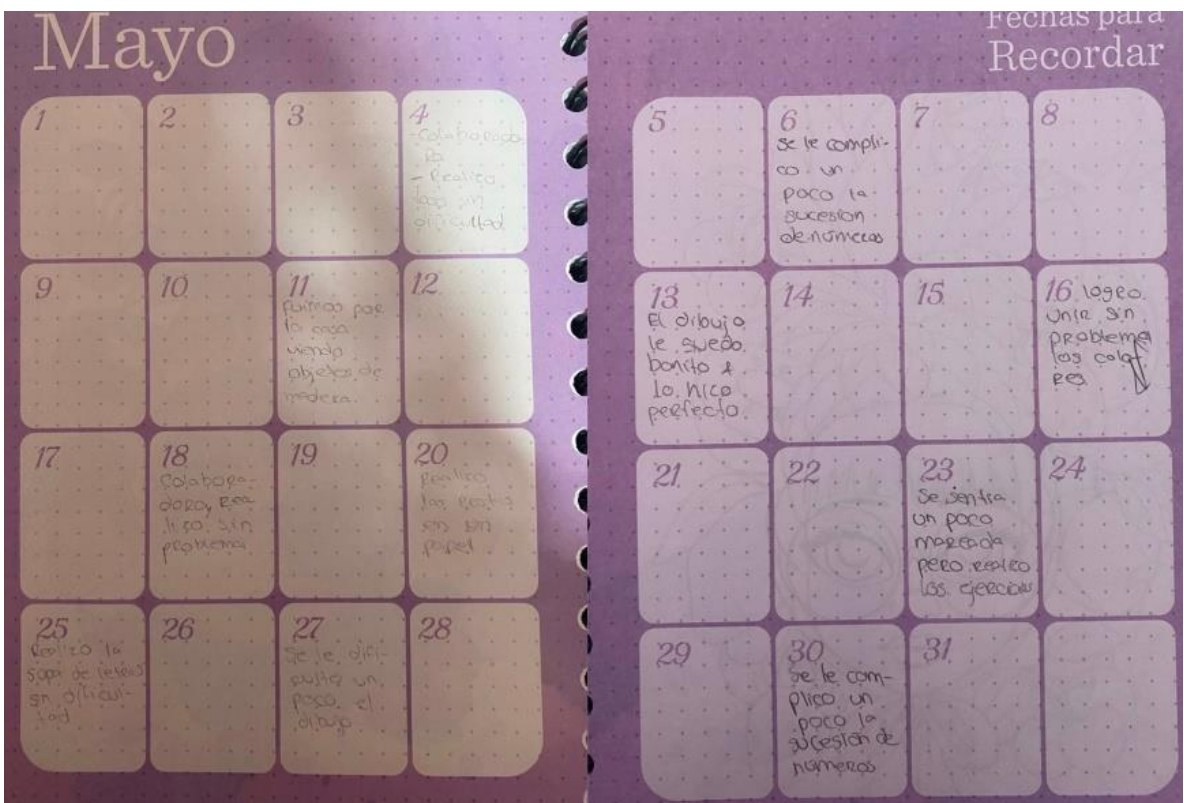 Mayo
1
2
3
4
-Colaborado
Ra
- Realizo
todo sin
dificultad
9
10
11
Fuimos por
la casa
viendo
objetos de
madera.
12
17
18
Colabora-
dora, Rea
lizo sin
problema
19
20
Realizo
las Restas
en un
papel
25
Realizo la
sopa de letras
sin dificul-
tad
26
27
Se le difi-
culto un
poco el
dibujo
28
Fechas para
Recordar
5
6
se le compli-
co un
poco la
sucesion
de numeros
7
8
13
El dibujo
le quedo
bonito &
lo hico
perfecto.
14
15
16 logro
unir sin
problema
los colo
res
21
22
23
Se sentia
un poco
mareada
pero realizo
los ejercicios
24
29
30
Se le com-
plico un
poco la
sucesion de
numeros
31